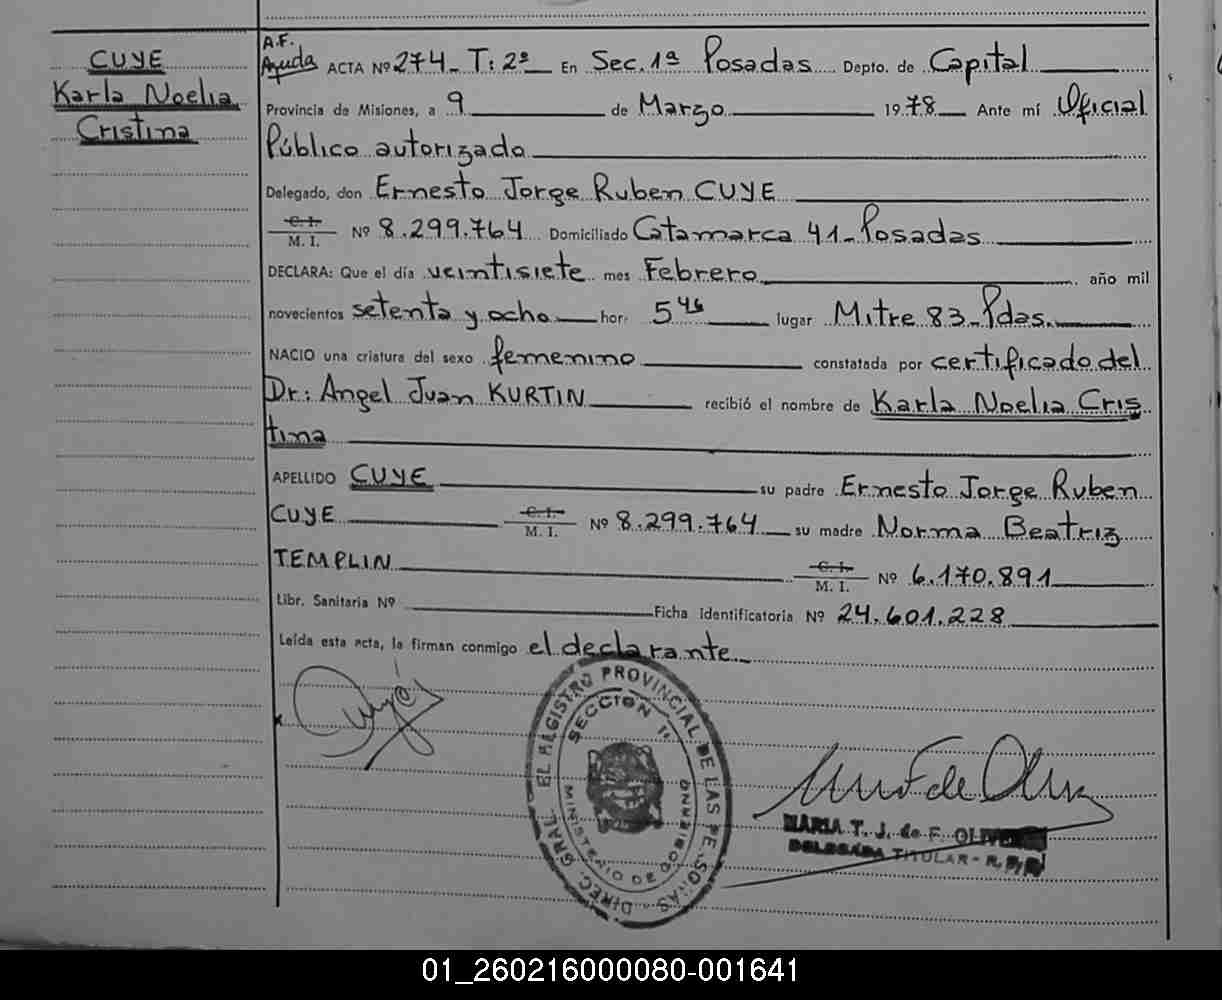 CUYE
Karla Noelia
Cristina
A.F.
Ayuda ACTA Nº 274_ T: 2º En Sec. 1ª Posadas Depto. de Capital
Provincia de Misiones, a 9 de Marzo 1978 Ante mí Oficial
Público autorizado
Delegado, don Ernesto Jorge Ruben CUYE
C. I.
M. I. Nº 8.299.764 Domiciliado Catamarca 41_ Posadas
DECLARA: Que el día veintisiete mes Febrero año mil
novecientos setenta y ocho hor. 5 46 lugar Mitre 83_ Pdas.
NACIO una criatura del sexo femenino constatada por certificado del
Dr: Angel Juan KURTIN recibió el nombre de Karla Noelia Cris
tina
APELLIDO CUYE su padre Ernesto Jorge Ruben
CUYE C. I. M. I. Nº 8.299.764 su madre Norma Beatriz
TEMPLIN C. I. M. I. Nº 6.170.891
Libr. Sanitaria Nº Ficha identificatoria Nº 24.601.228
Leída esta acta, la firman conmigo el declarante_
DIREC. GRAL. EL REGISTRO PROVINCIAL DE LAS PE SONAS
SECCION 1ª
MINISTERIO DE GOBIERNO
MARIA T. J. de F.
DELEGADA TITULAR - R.P.P.
01_260216000080-001641